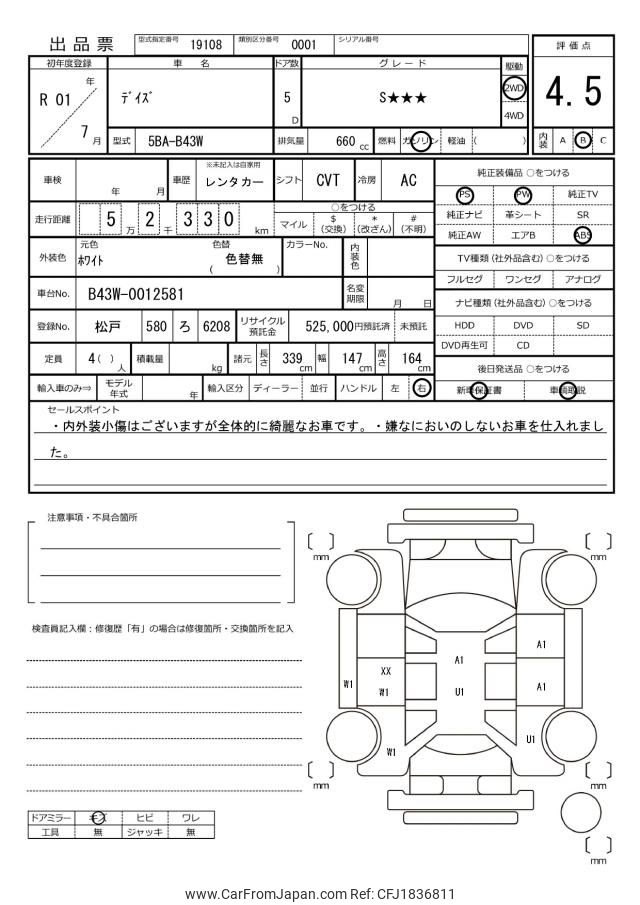 出品票 型式指定番号 19108 類別区分番号 0001 シリアル番号
評価点
4.5
内装 A B C
初年度登録 車名 ドア数 グレード 駆動
R 01 年 ﾃﾞｲｽﾞ 5 D S★★★ 2WD
4WD
7 月 型式 5BA-B43W 排気量 660 cc 燃料 ガソリン 軽油 ( )
車検 年 月 車歴 ※未記入は自家用 レンタカー シフト CVT 冷房 AC
走行距離 5 万 2 千 3 3 0 km ○をつける
マイル $ (交換) * (改ざん) # (不明)
外装色 元色 ﾎﾜｲﾄ 色替 ( 色替無 ) カラーNo. 内装色
車台No. B43W-0012581 名変期限 月 日
登録No. 松戸 580 ろ 6208 リサイクル預託金 525,000円預託済 未預託
定員 4 ( ) 人 積載量 kg 諸元 長さ 339 cm 幅 147 cm 高さ 164 cm
輸入車のみ⇒ モデル年式 年 輸入区分 ディーラー 並行 ハンドル 左 右
純正装備品 ○をつける
PS PW 純正TV
純正ナビ 革シート SR
純正AW エアB ABS
TV種類 (社外品含む) ○をつける
フルセグ ワンセグ アナログ
ナビ種類 (社外品含む) ○をつける
HDD DVD SD
DVD再生可 CD
後日発送品 ○をつける
新車保証書 車輌取説
セールスポイント
・内外装小傷はございますが全体的に綺麗なお車です。・嫌なにおいのしないお車を仕入れまし
た。
注意事項・不具合箇所
検査員記入欄：修復歴「有」の場合は修復箇所・交換箇所を記入
ドアミラー キズ ヒビ ワレ
工具 無 ジャッキ 無
mm
mm
A1
A1
XX
W1
W1
U1
A1
W1
U1
mm
mm
mm
www.CarFromJapan.com Ref: CFJ1836811